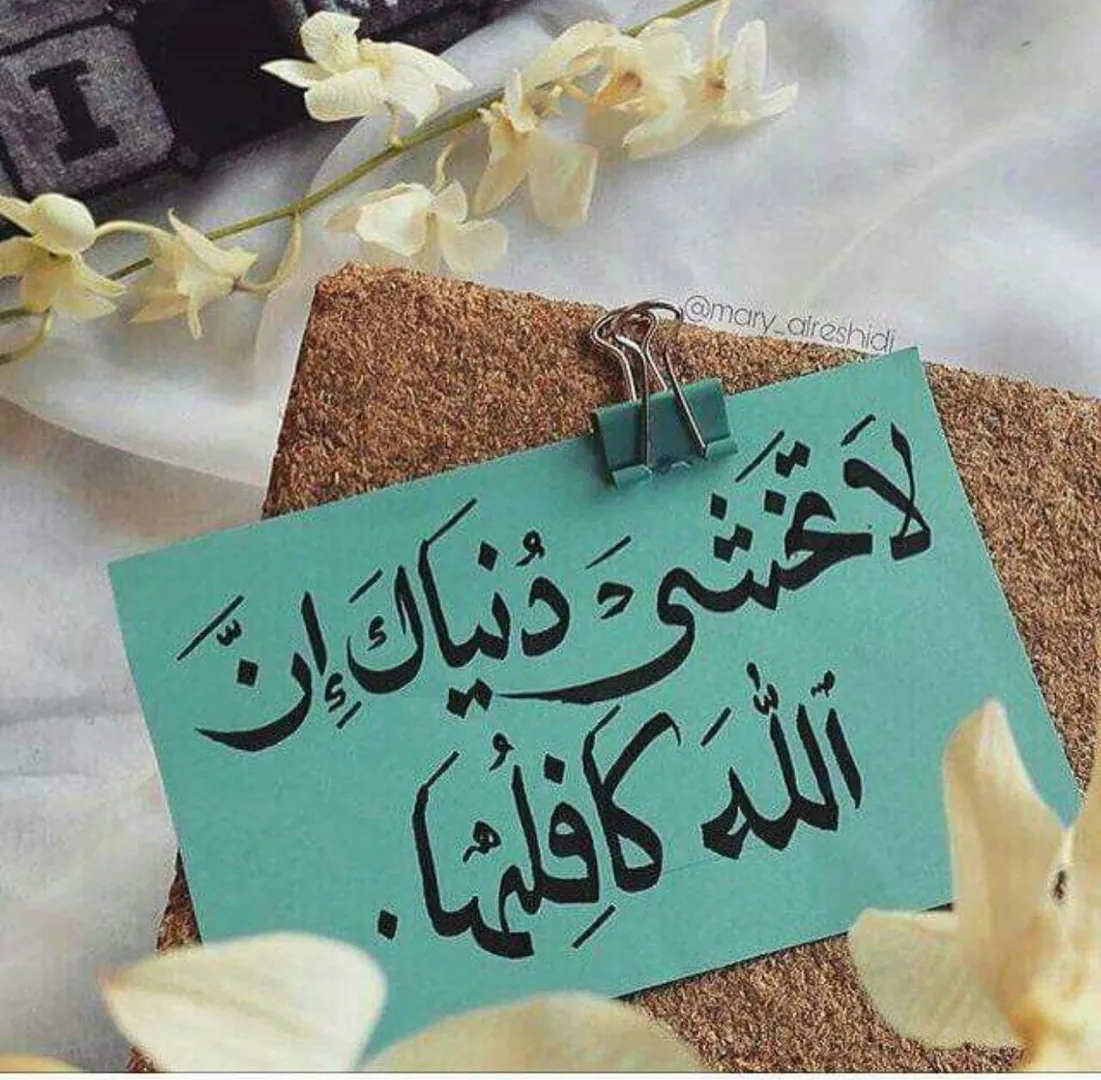 I
@mary_alreshidi
لَا تَخْشَىٰ دُنْيَاكَ إِنَّ
ٱللَّهَ كَافِلُهَا.